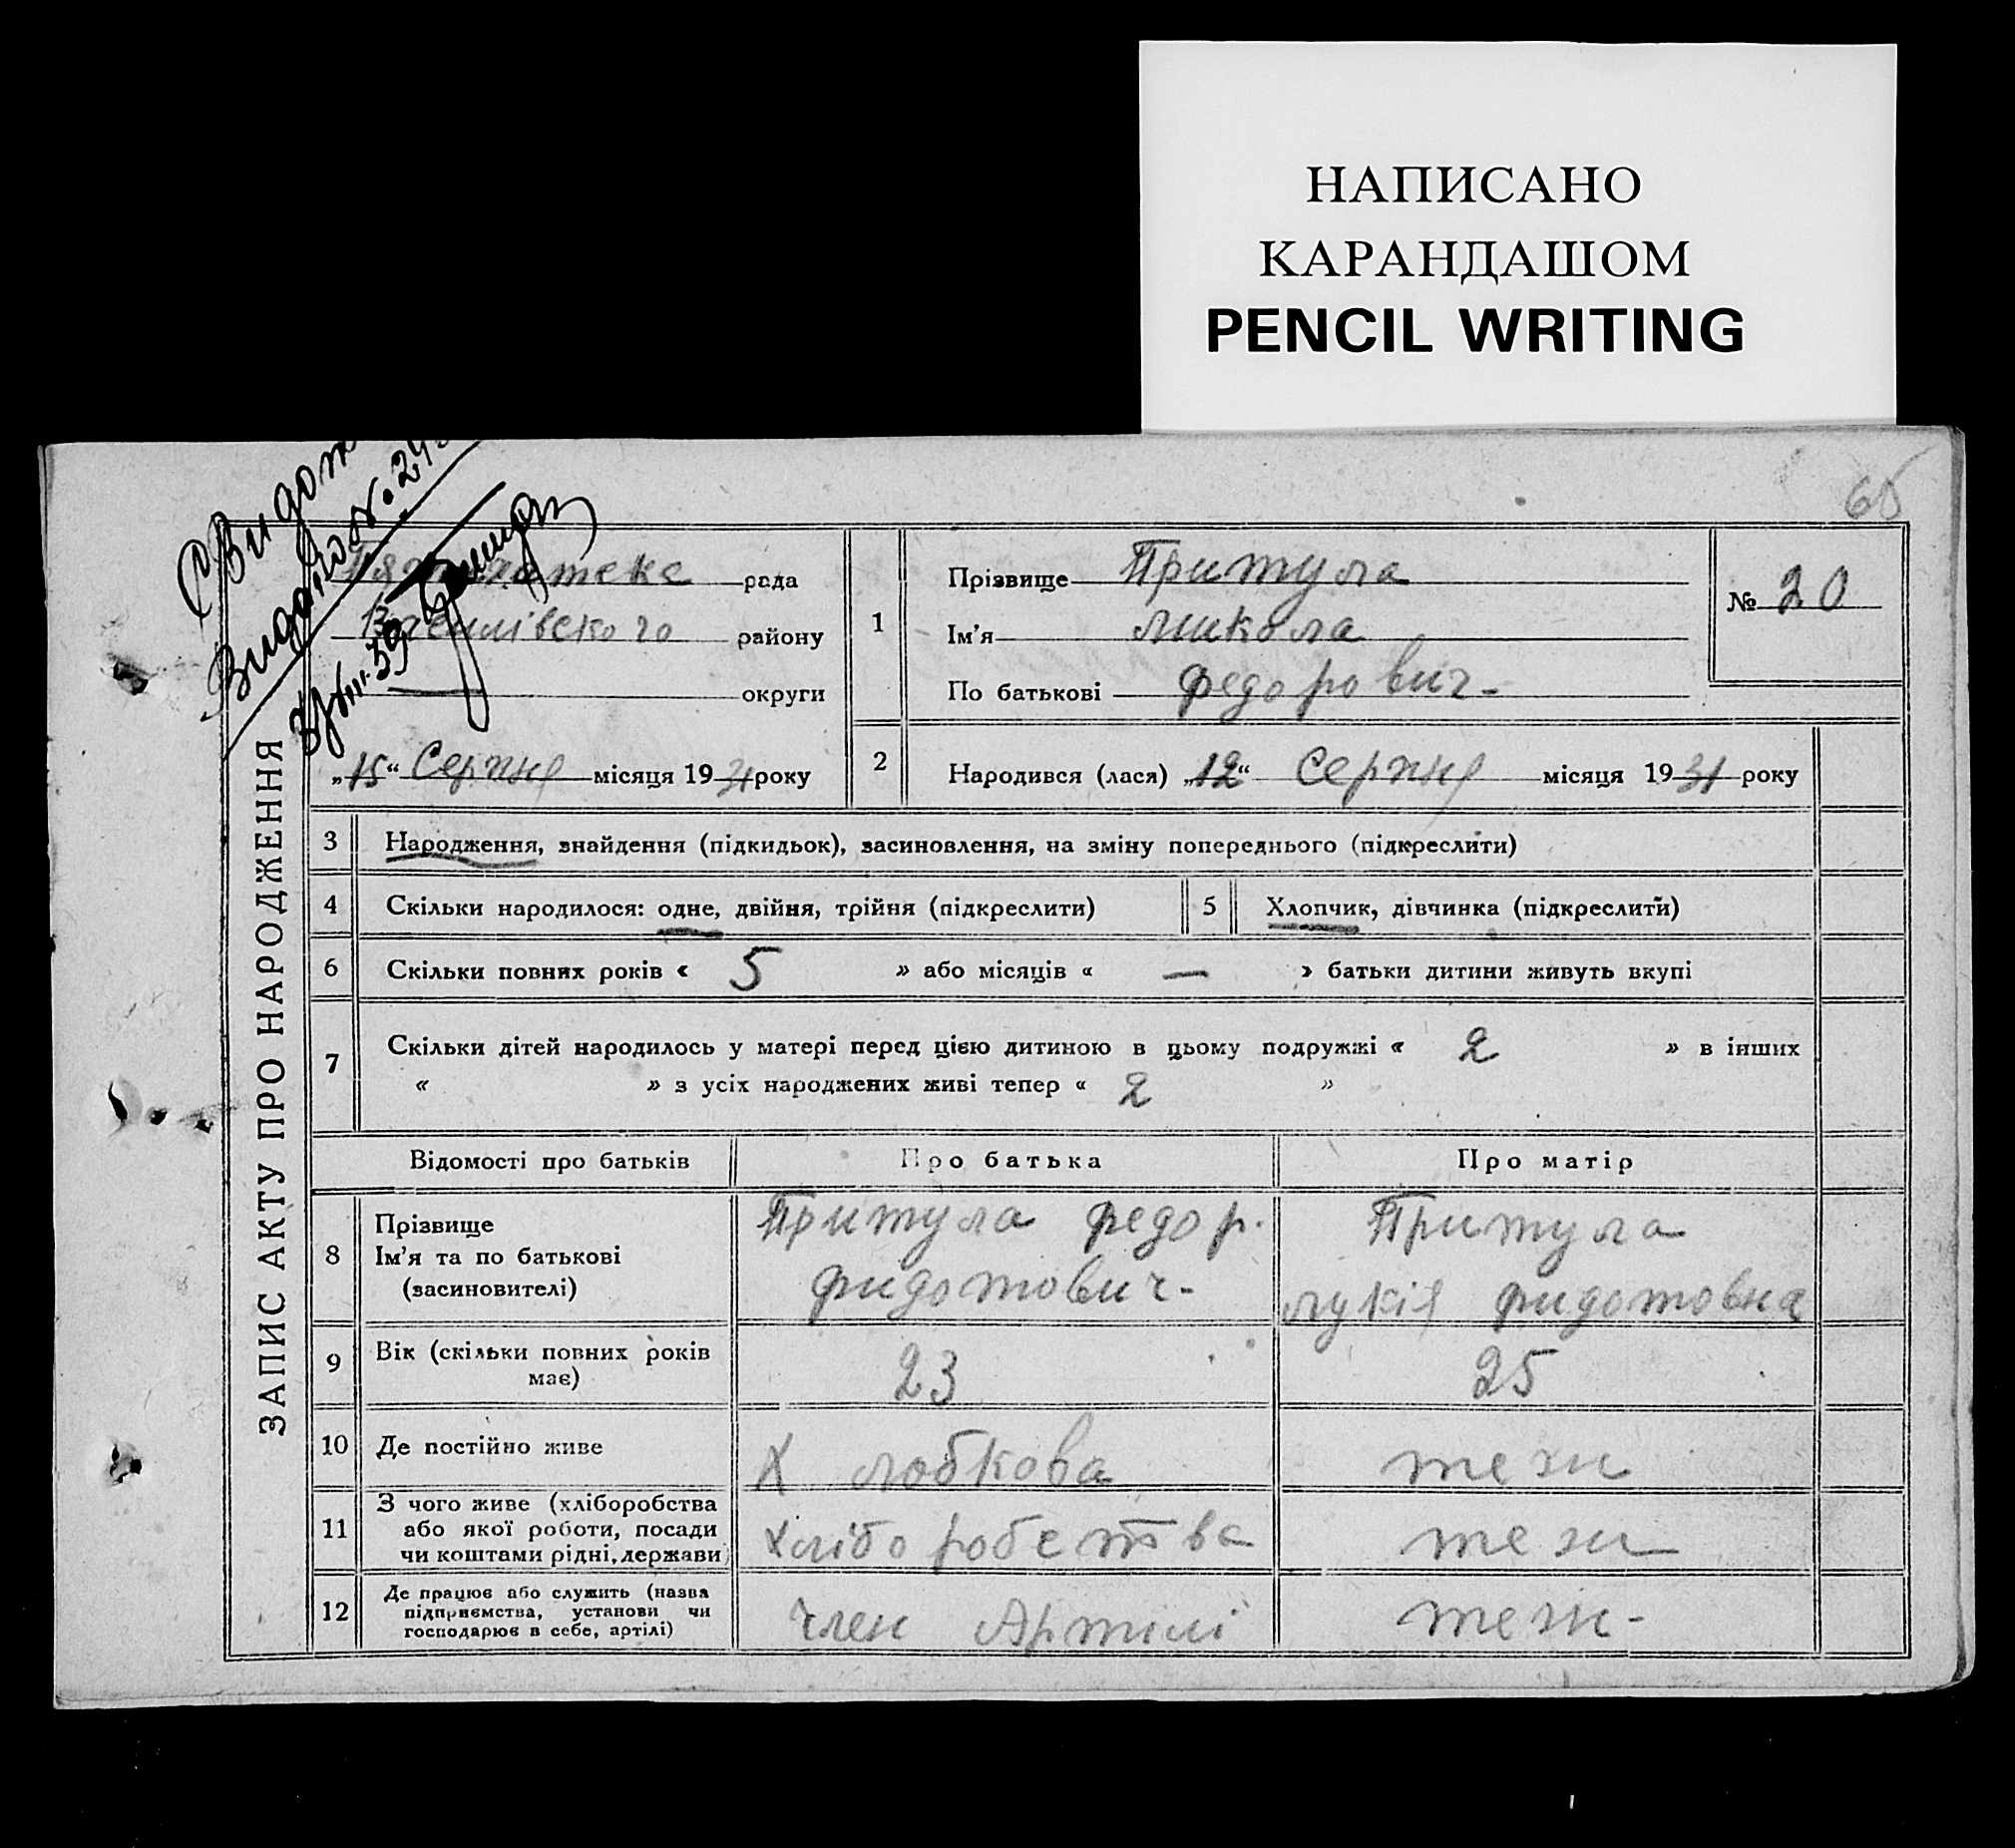 НАПИСАНО
КАРАНДАШОМ
PENCIL WRITING
ЗАПИС АКТУ ПРО НАРОДЖЕННЯ
рада
району
округи
„15“ Серпня місяця 1931 року
1
Прізвище Притула
Ім'я Микола
По батькові Федорович-
№ 20
2 Народився (лася) „12“ Серпня місяця 1931 року
3 Народження, знайдення (підкидьок), засиновлення, на зміну попереднього (підкреслити)
4 Скільки народилося: одне, двійня, трійня (підкреслити) 5 Хлопчик, дівчинка (підкреслити)
6 Скільки повних років « 5 » або місяців « — » батьки дитини живуть вкупі
7 Скільки дітей народилось у матері перед цією дитиною в цьому подружжі « 2 » в інших
« » з усіх народжених живі тепер « 2 »
Відомості про батьків Про батька Про матір
8
Прізвище
Ім'я та по батькові
(засиновителі)
Притула Федор.
Фидотович-
Притула
Лукія Фидотовна
9 Вік (скільки повних років
має)
23
25
10 Де постійно живе
Х Лобкова
тежи
11
З чого живе (хліборобства
або якої роботи, посади
чи коштами рідні, держави)
хліборобства
тежи
12
Де працює або служить (назва
підприємства, установи чи
господарює в себе, артілі)
член Артилі
тежи-